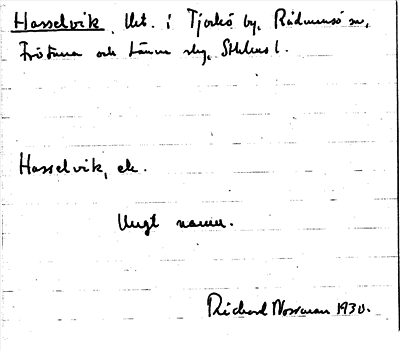 Hasselvik. Utt. i Tjockö by, Rådmansö sn,
Frötuna och Länna sklg, Sthlms l.
Hasselvik, ek.
Ungt namn.
Richard Norrman 1930.